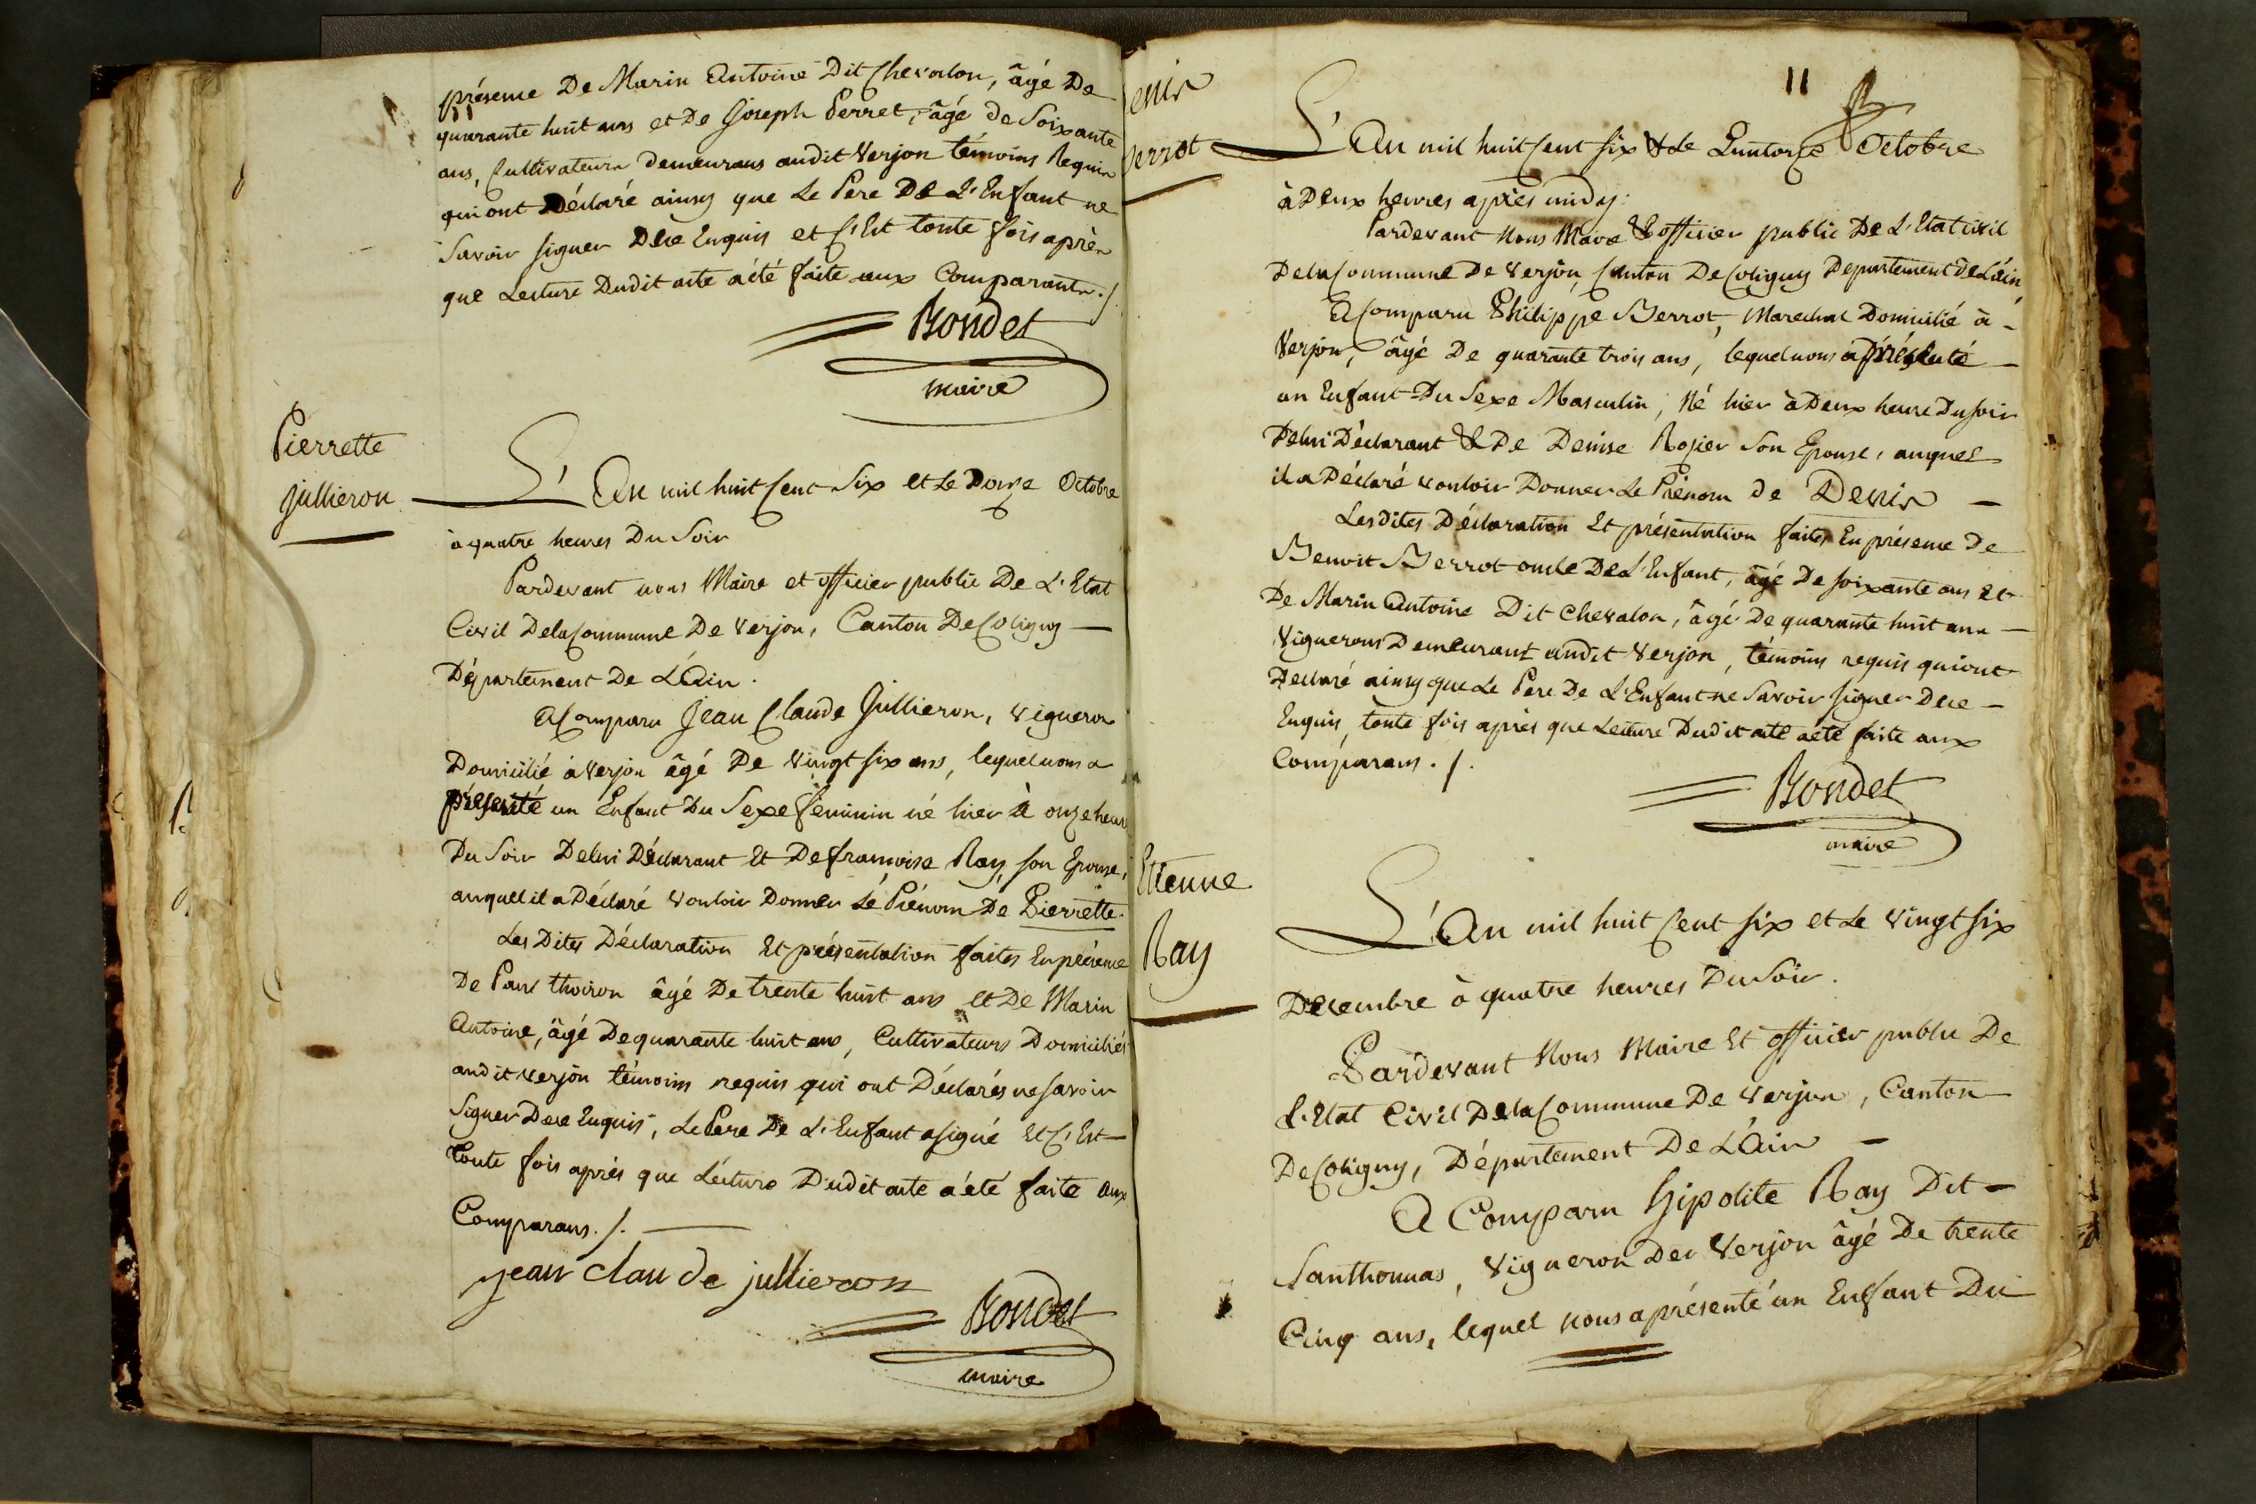 présence De Marin Antoine Dit Chevalon, âgé De
quarante huit ans et De Joseph Perret, âgé de Soixante
ans, Cultivateurs demeurans audit Verjon témoins Requis
qui ont Déclaré ainsy que Le Pere De L'Enfant ne
Savoir signer De ce Enquis et C'Est toute fois après
que Lecture Dudit acte a été faite aux Comparants ./.
Bondet
maire
Pierrette
jullieron
L'An mil huit Cent Six et Le Douze Octobre
à quatre heures Du Soir
Pardevant nous Maire et officier public De L'Etat
Civil De la Commune De Verjon, Canton De Coligny —
Département De L'Ain.
A Comparu Jean Claude Jullieron, vigneron
Domicilié à Verjon âgé De vingt six ans, lequel nous a
présenté un Enfant Du Sexe feminin né hier à onze heures
Du Soir De lui Déclarant Et De françoise Ray, son Epouse,
auquel il a Déclaré vouloir Donner Le Prénom De Pierrette.
Les Dites Déclaration Et présentation faites En présence
De Paul thoiron âgé De trente huit ans et De Marin
Antoine, âgé De quarante huit ans, Cultivateurs Domiciliés
audit verjon témoins requis qui ont Déclarés ne savoir
Signer De ce Enquis, Le Pere De L'Enfant a signé Et C'Est —
toute fois après que Lecture Dudit acte a été faite aux
Comparans ./. —
jean claude jullieron
Bondet
maire
11
enis
errot
L'An mil huit Cent six & Le Quatorze Octobre
à Deux heures après midy:
Pardevant Nous Maire & officier public De L'Etat civil
De la Commune De Verjon, Canton De Coligny Departement De L'ain,
A Comparu Philippe Berrot, Marechal Domicilié à -
Verjon, âgé De quarante trois ans, lequel nous a présenté —
un Enfant Du Sexe Masculin, Né hier à Deux heure Du soir
De lui Déclarant & De Denise Rozier Son Epouse, auquel
il a Déclaré vouloir Donner Le Prénom de Denis —
Les dites Déclaration Et présentation faites En présence De
Benoit Berrot oncle De L'Enfant, âgé De soixante ans et
De Marin Antoine Dit Chevalon, âgé De quarante huit ans —
Vignerons Demeurant audit Verjon, témoins requis qui ont
Declaré ainsy que Le Pere De L'Enfant ne Savoir signer De ce —
Enquis, toute fois après que Lecture Dudit acte a été faite aux
Comparans ./.
Bondet
maire
Etienne
Ray
L'An mil huit Cent six et Le vingt six
Decembre à quatre heures Du Soir.
Pardevant Nous Maire Et officier public De
L'Etat Civil De la Commune De Verjon, Canton
De Coligny, Département De L'Ain —
A Comparu hipolite Ray Dit —
Santhonnas, vigneron De Verjon âgé De trente
Cinq ans, lequel nous a présenté un Enfant Du